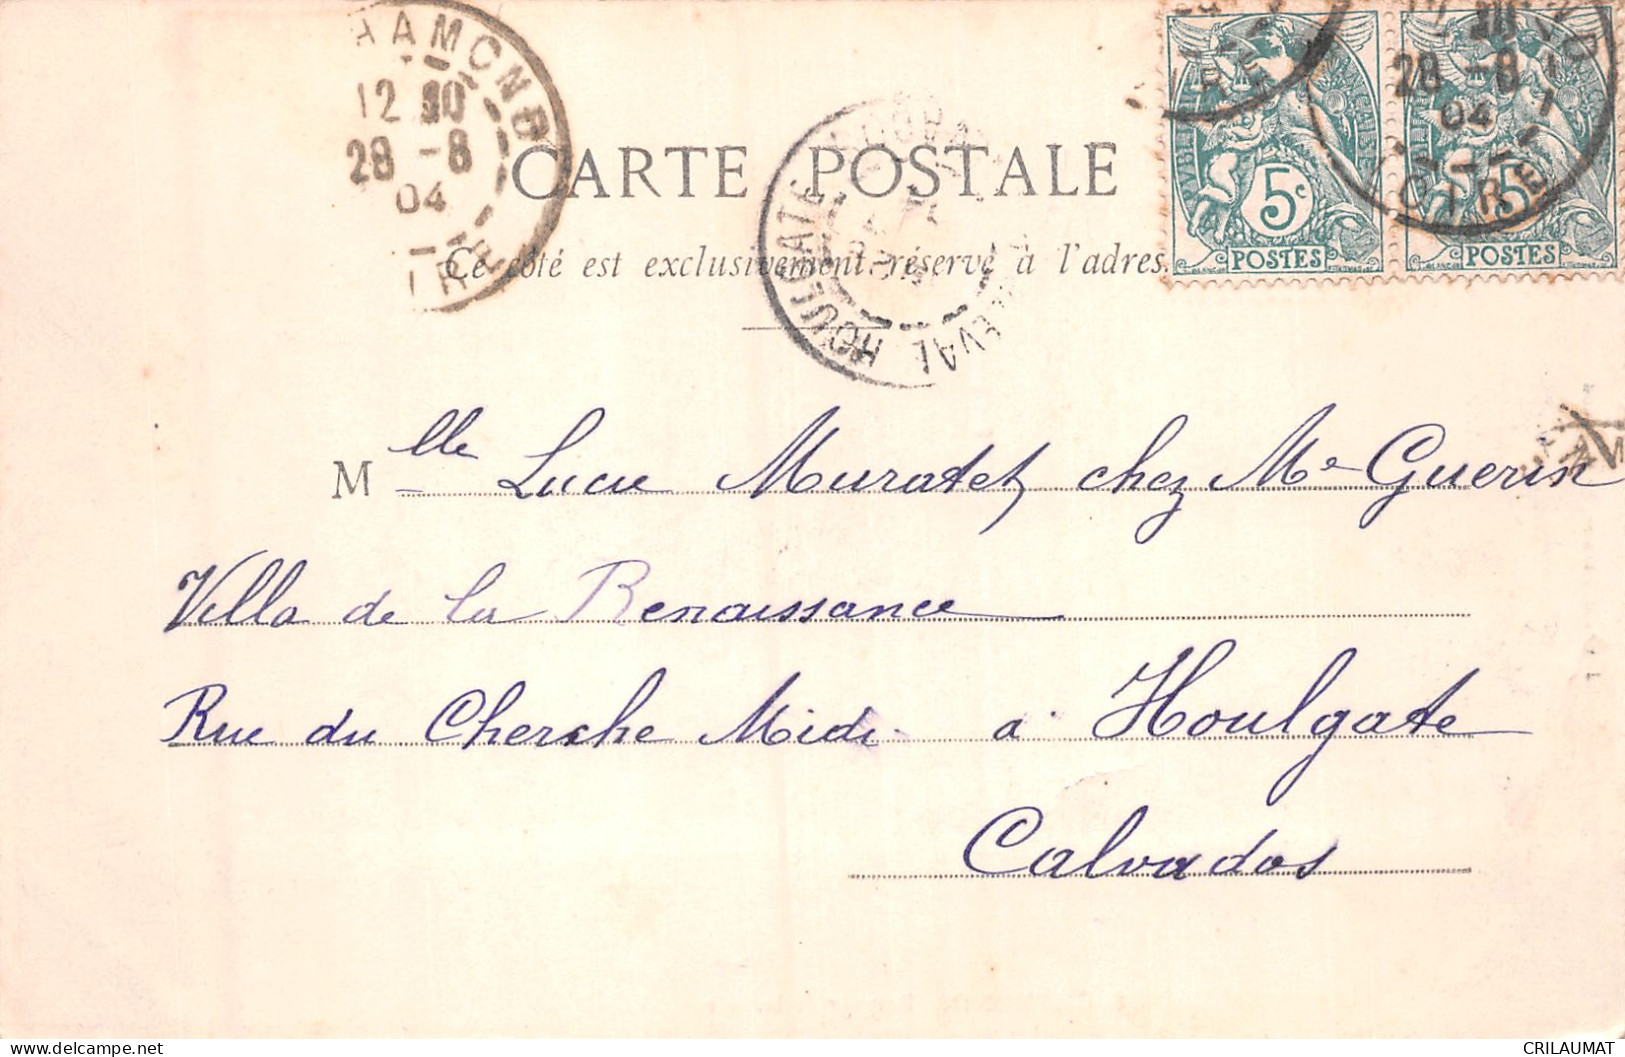 AAMOND
12 30
28 -8
04
CARTE POSTALE
Ce côté est exclusivement réservé à l'adres
HOULGATE BEUZEVAL
RÉPUBLIQUE FRANÇAISE
5c
POSTES
5
POSTES
28 -8
04
LOIRE
Mlle Lucie Muratet chez Me Guerin
Villa de la Renaissance
Rue du Cherche Midi à Houlgate
Calvados
CRILAUMAT